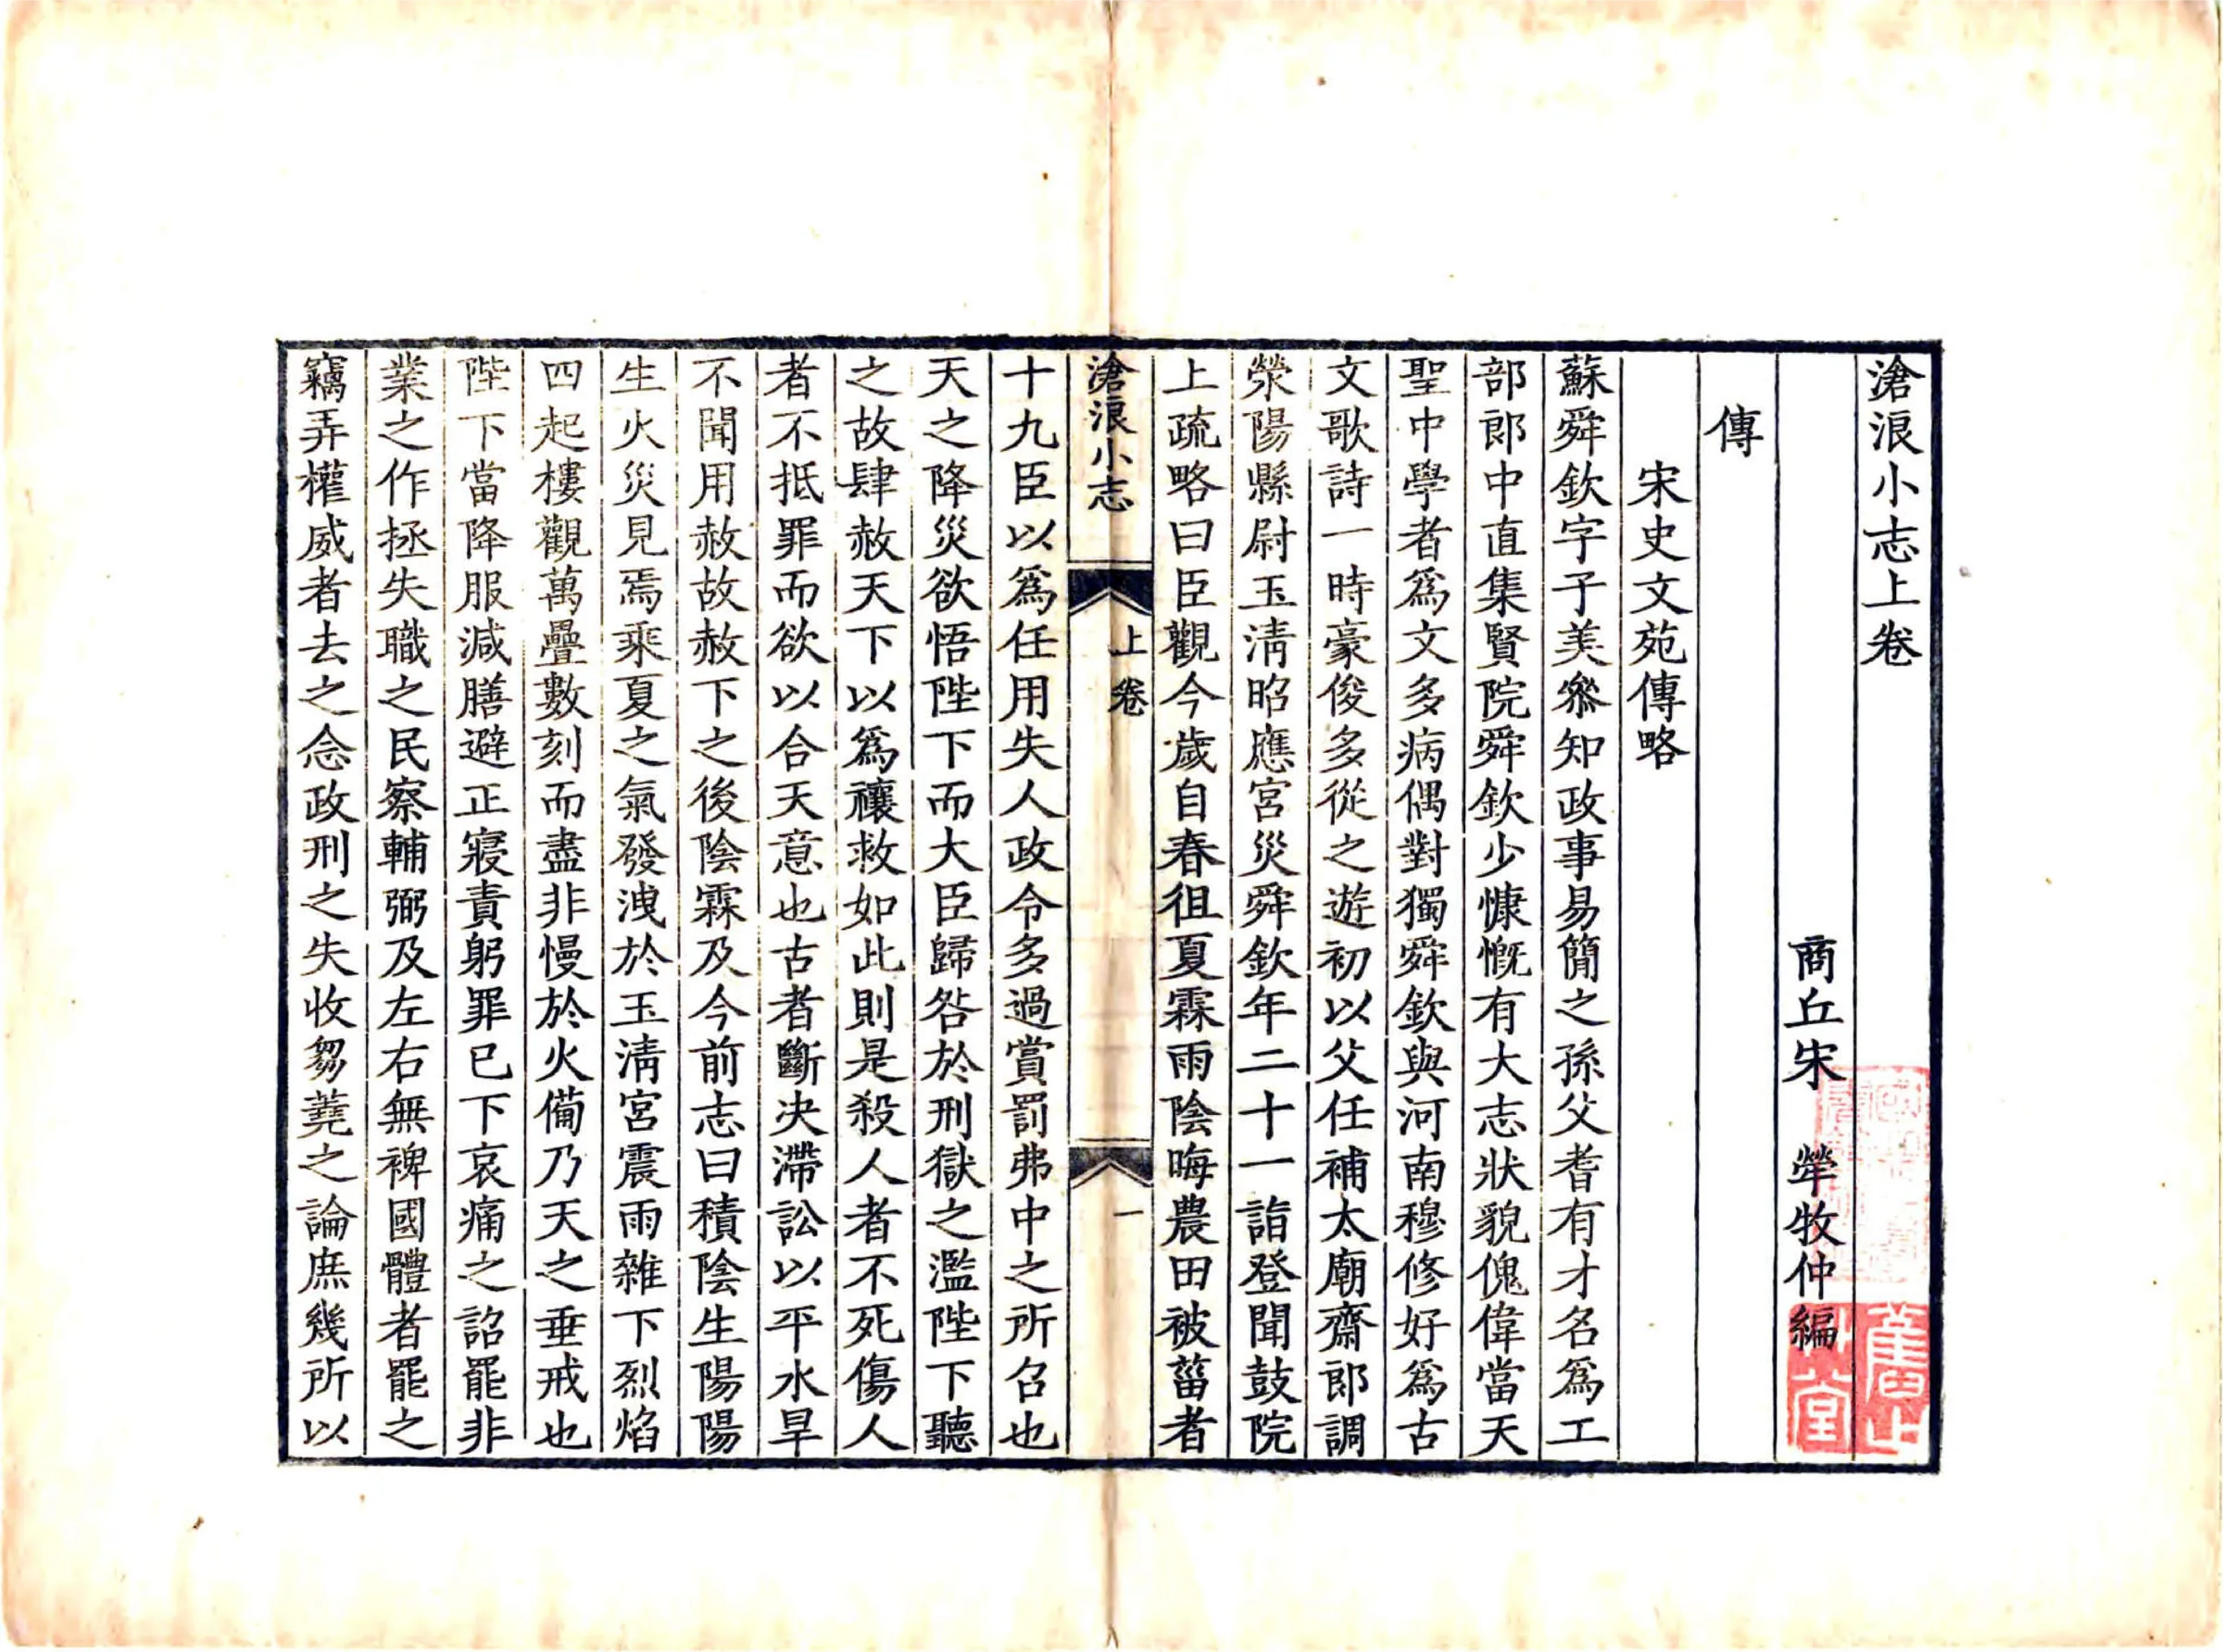 滄浪小志上卷
商丘宋 犖牧仲編
傳
宋史文苑傳略
蘇舜欽字子美叅知政事易簡之孫父耆有才名爲工
部郎中直集賢院舜欽少慷慨有大志狀貌傀偉當天
聖中學者爲文多病偶對獨舜欽與河南穆修好爲古
文歌詩一時豪俊多從之遊初以父任補太廟齋郎調
滎陽縣尉玉清昭應宮災舜欽年二十一詣登聞鼓院
上疏略曰臣觀今歲自春徂夏霖雨陰晦農田被菑者
滄浪小志 上卷 一
十九臣以爲任用失人政令多過賞罰弗中之所召也
天之降災欲悟陛下而大臣歸咎於刑獄之濫陛下聽
之故肆赦天下以爲禳救如此則是殺人者不死傷人
者不抵罪而欲以合天意也古者斷决滯訟以平水旱
不聞用赦故赦下之後陰霖及今前志曰積陰生陽陽
生火災見焉乘夏之氣發洩於玉清宮震雨雜下烈焰
四起樓觀萬疊數刻而盡非慢於火備乃天之垂戒也
陛下當降服減膳避正寢責躬罪已下哀痛之詔罷非
業之作拯失職之民察輔弼及左右無裨國體者罷之
竊弄權威者去之念政刑之失收芻蕘之論庶幾所以